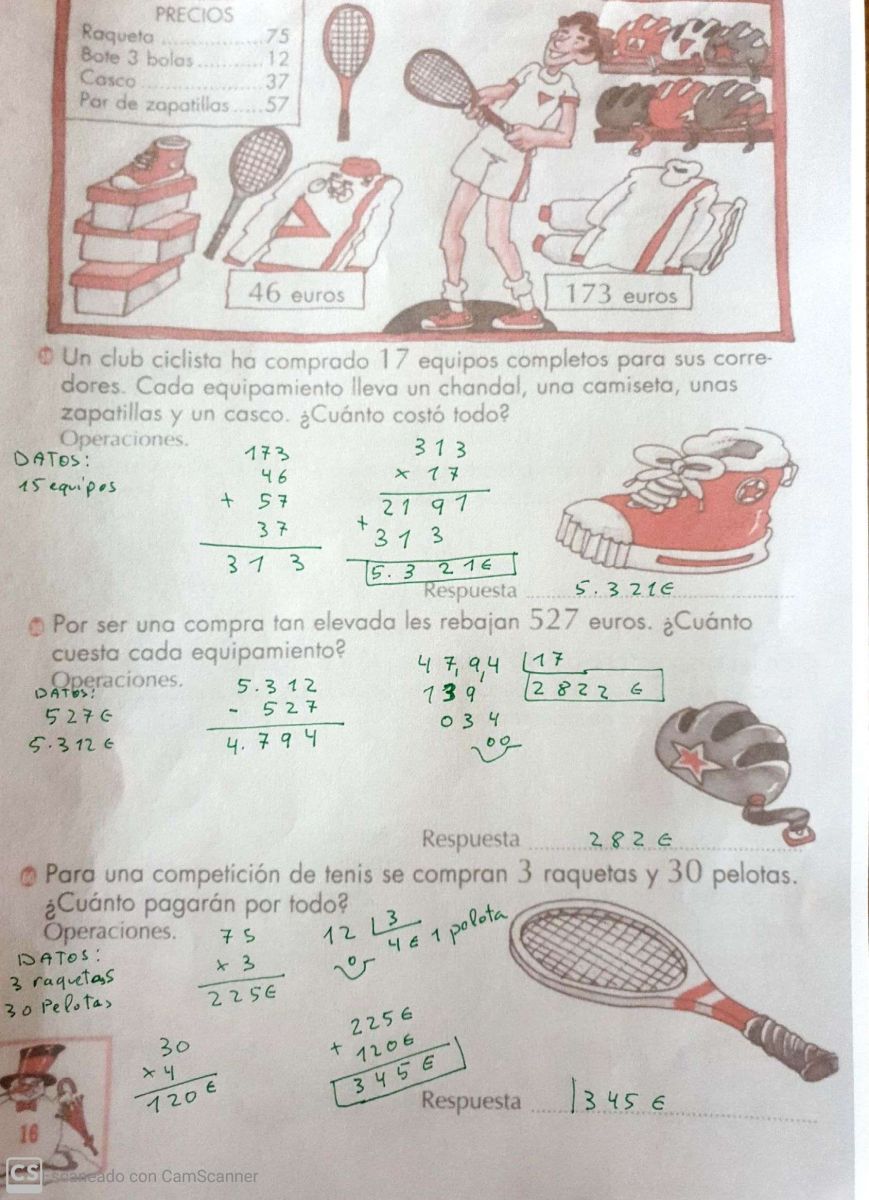 PRECIOS
Raqueta ............... 75
Bote 3 bolas .......... 12
Casco ................. 37
Par de zapatillas ..... 57
46 euros
173 euros
Un club ciclista ha comprado 17 equipos completos para sus corre-
dores. Cada equipamiento lleva un chandal, una camiseta, unas
zapatillas y un casco. ¿Cuánto costó todo?
Operaciones.
DATOS:
15 equipos
173
46
+ 57
37
313
313
× 17
2191
+
313
5.321€
Respuesta 5.321€
Por ser una compra tan elevada les rebajan 527 euros. ¿Cuánto
cuesta cada equipamiento?
Operaciones.
DATOS:
527€
5.312€
5.312
- 527
4.794
47,9,4 17
139 2822 €
034
00
Respuesta 282€
Para una competición de tenis se compran 3 raquetas y 30 pelotas.
¿Cuánto pagarán por todo?
Operaciones.
DATOS:
3 raquetas
30 Pelotas
75
× 3
225€
12 3
0 4€ 1 pelota
30
× 4
120€
225€
+ 120€
345€
Respuesta 345 €
16
CS Escaneado con CamScanner